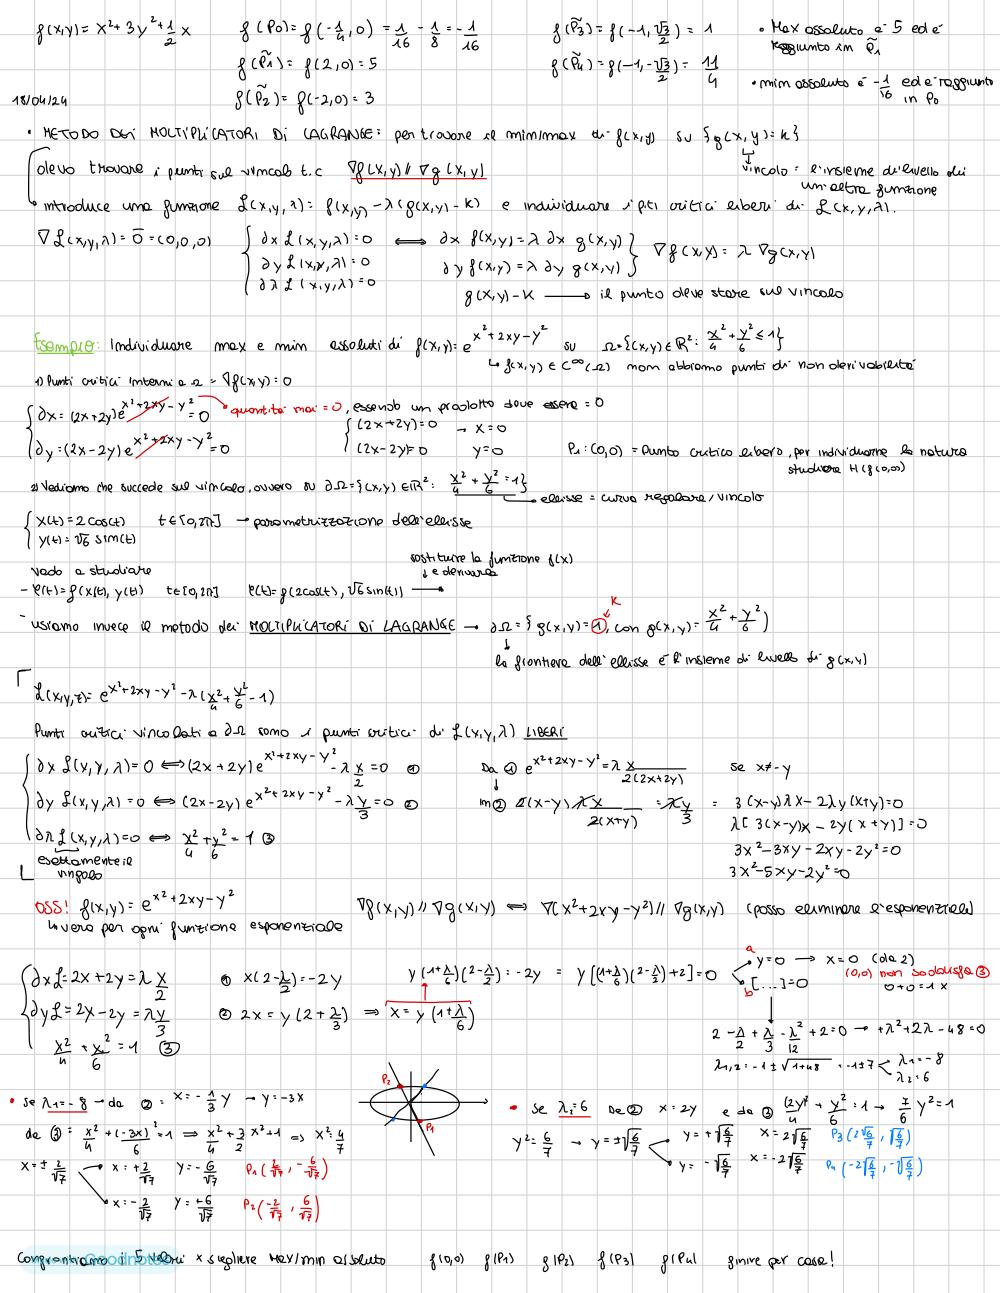 f(x,y) = x² + 3y² + 1/2 x
f(P0) = f(-1/4, 0) = 1/16 - 1/8 = -1/16
f(P̃1) = f(2,0) = 5
f(P̃2) = f(-2,0) = 3
f(P̃3) = f(-1, √3/2) = 1
f(P̃4) = f(-1, -√3/2) = 11/4
• Max assoluto è 5 ed è raggiunto in P̃1
• min assoluto è -1/16 ed è raggiunto in P0
18/04/24
• METODO DEI MOLTIPLICATORI DI LAGRANGE: per trovare il min/max di f(x,y) su {g(x,y)=k}
vincolo = l'insieme di livello di un'altra funzione
devo trovare i punti sul vincolo t.c ∇f(x,y) // ∇g(x,y)
introduce una funzione L(x,y,λ) = f(x,y) - λ(g(x,y) - k) e individuare i pti critici liberi di L(x,y,λ).
∇L(x,y,λ) = 0 = (0,0,0)
∂x L(x,y,λ)=0 ⟺ ∂x f(x,y) = λ ∂x g(x,y)
∂y L(x,y,λ)=0 ∂y f(x,y) = λ ∂y g(x,y)
∇f(x,y) = λ ∇g(x,y)
∂λ L(x,y,λ)=0 g(x,y) - k → il punto deve stare sul vincolo
Esempio: Individuare max e min assoluti di f(x,y) = e^(x²+2xy-y²) su Ω={(x,y)∈ℝ²: x²/4 + y²/6 ≤ 1}
↳ f(x,y) ∈ C^∞(Ω) non abbiamo punti di non derivabilità
1) Punti critici interni a Ω - ∇f(x,y)=0
∂x = (2x+2y)e^(x²+2xy-y²) = 0 quantità mai = 0, essendo un prodotto deve essere = 0
∂y = (2x-2y)e^(x²+2xy-y²) = 0
(2x+2y)=0 → x=0
(2x-2y)=0 y=0
P1: (0,0) = Punto critico libero, per individuarne la natura studiare H(f(0,0))
2) Vediamo che succede sul vincolo, ovvero su ∂Ω={(x,y)∈ℝ²: x²/4 + y²/6 = 1}
→ ellisse = curva regolare/vincolo
x(t) = 2cos(t) t∈[0,2π] → parametrizzazione dell'ellisse
y(t) = √6 sin(t)
vado a studiare
sostituire la funzione f(x) e derivarla
- φ(t)=f(x(t), y(t)) t∈[0,2π] φ(t)=f(2cos(t), √6 sin(t)) →
- usiamo invece il metodo dei MOLTIPLICATORI DI LAGRANGE → ∂Ω={g(x,y)=1, con g(x,y)= x²/4 + y²/6}
k
la frontiera dell'ellisse è l'insieme di livello di g(x,y)
L(x,y,z)= e^(x²+2xy-y²) - λ(x²/4 + y²/6 - 1)
Punti critici vincolati a ∂Ω sono i punti critici di L(x,y,λ) LIBERI
∂x L(x,y,λ)=0 ⟺ (2x+2y)e^(x²+2xy-y²) - λ x/2 = 0 ①
∂y L(x,y,λ)=0 ⟺ (2x-2y)e^(x²+2xy-y²) - λ y/3 = 0 ②
∂λ L(x,y,λ)=0 ⟺ x²/4 + y²/6 = 1 ③
esattamente il vincolo
Da ① e^(x²+2xy-y²) = λ x/2(2x+2y) se x≠-y
in ② 2(x-y) λx/2(x+y) = λy/3 = 3(x-y)λx - 2λy(x+y)=0
λ[3(x-y)x - 2y(x+y)]=0
3x²-3xy-2xy-2y²=0
3x²-5xy-2y²=0
OSS! f(x,y) = e^(x²+2xy-y²) ∇f(x,y)//∇g(x,y) ⟺ ∇(x²+2xy-y²)//∇g(x,y) (posso eliminare l'esponenziale)
↳ vero per ogni funzione esponenziale
∂xL=2x+2y=λ x/2
∂yL=2x-2y=λ y/3
x²/4 + x²/6 = 1 ③
① x(2-λ/2)=-2y
② 2x = y(2+λ/3) ⟹ x = y(1+λ/6)
y(1+λ/6)(2-λ/2)=-2y = y[(1+λ/6)(2-λ/2)+2]=0
a y=0 → x=0 (da 2)
(0,0) non soddisfa ③
0+0=1 x
b [...]=0
2 - λ/2 + λ/3 - λ²/12 + 2 = 0 → +λ²+2λ-48=0
λ1,2 = -1±√(1+48) = -1±7 λ1=-8
λ2=6
• se λ1=-8 → da ②: x=-1/3 y → y=-3x
da ③: x²/4 + (-3x)²/6 = 1 ⟹ x²/4 + 3/2 x² = 1 ⟹ x²=4/7
x=± 2/√7
x=+2/√7 y=-6/√7 P1(2/√7, -6/√7)
x=-2/√7 y=+6/√7 P2(-2/√7, 6/√7)
P2
P1
• Se λ2=6 Da ② x=2y e da ③ (2y)²/4 + y²/6 = 1 → 7/6 y²=1
y²=6/7 → y=±√6/7
y=+√6/7 x=2√6/7 P3(2√6/7, √6/7)
y=-√6/7 x=-2√6/7 P4(-2√6/7, -√6/7)
Confrontiamo i 5 valori x scegliere Max/min assoluto f(0,0) f(P1) f(P2) f(P3) f(P4) finire per casa!
Goodnotes